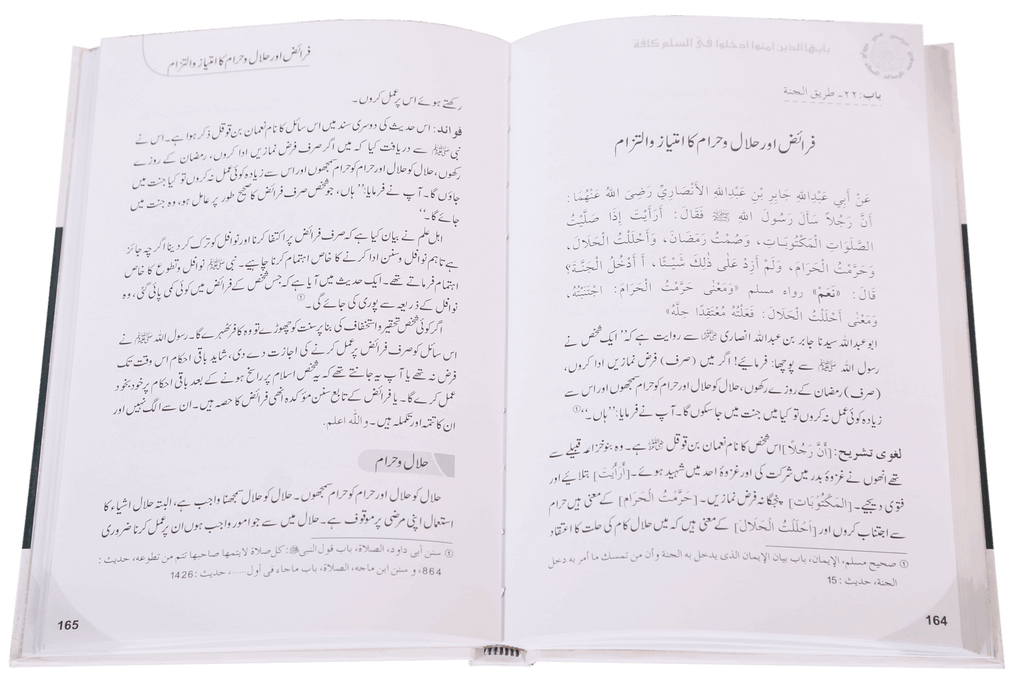 يايها الذين امنوا ادخلوا في السلم كافة
باب: ٢٢- طريق الجنة
فرائض اور حلال وحرام کا امتیاز والتزام
عَنْ أَبِي عَبْدِاللهِ جَابِرِ بْنِ عَبْدِاللهِ الأَنْصَارِيِّ رَضِيَ اللهُ عَنْهُمَا:
أَنَّ رَجُلاً سَأَلَ رَسُولَ اللهِ ﷺ فَقَالَ: أَرَأَيْتَ إِذَا صَلَّيْتُ
الصَّلَوَاتِ الْمَكْتُوبَاتِ، وَصُمْتُ رَمَضَانَ، وَأَحْلَلْتُ الْحَلَالَ،
وَحَرَّمْتُ الْحَرَامَ، وَلَمْ أَزِدْ عَلَى ذٰلِكَ شَيْئًا، أَأَدْخُلُ الْجَنَّةَ؟
قَالَ: «نَعَمْ» رواه مسلم «وَمَعْنَى حَرَّمْتُ الْحَرَامَ: اجْتَنَبْتُهُ،
وَمَعْنَى أَحْلَلْتُ الْحَلَالَ: فَعَلْتُهُ مُعْتَقِدًا حِلَّهُ»
ابوعبداللہ سیدنا جابر بن عبداللہ انصاری رضی اللہ عنہما سے روایت ہے کہ ”ایک شخص نے
رسول اللہ ﷺ سے پوچھا: فرمائیے! اگر میں (صرف) فرض نمازیں ادا کروں،
(صرف) رمضان کے روزے رکھوں، حلال کو حلال اور حرام کو حرام سمجھوں اور اس سے
زیادہ کوئی عمل نہ کروں تو کیا میں جنت میں جا سکوں گا۔ آپ نے فرمایا: ”ہاں۔“①
لغوی تشریح: [أَنَّ رَجُلاً] اس شخص کا نام نعمان بن قوقل رضی اللہ عنہ ہے۔ وہ بنو خزاعہ قبیلے سے
تھے انھوں نے غزوۂ بدر میں شرکت کی اور غزوۂ احد میں شہید ہوئے۔ [أَرَأَيْتَ] بتلائیے اور
فتویٰ دیجیے۔ [الْمَكْتُوبَاتِ] پنجگانہ فرض نمازیں۔ [حَرَّمْتُ الْحَرَامَ] کے معنی ہیں حرام
سے اجتناب کروں اور [أَحْلَلْتُ الْحَلَالَ] کے معنی ہیں کہ میں حلال کام کی حلت کا اعتقاد
① صحيح مسلم، الإيمان، باب بيان الإيمان الذى يدخل به الجنة وأن من تمسك ما أمر به دخل
الجنة، حديث: 15
164
فرائض اور حلال وحرام کا امتیاز والتزام
رکھتے ہوئے اس پر عمل کروں۔
فوائد: اس حدیث کی دوسری سند میں اس سائل کا نام نعمان بن قوقل ذکر ہوا ہے۔ اس نے
نبی ﷺ سے دریافت کیا کہ میں اگر صرف فرض نمازیں ادا کروں، رمضان کے روزے
رکھوں، حلال کو حلال اور حرام کو حرام سمجھوں اور اس سے زیادہ کوئی عمل نہ کروں تو کیا جنت میں
جاؤں گا۔ آپ نے فرمایا: ”ہاں، جو شخص صرف فرائض کا صحیح طور پر عامل ہو، وہ جنت میں
جائے گا۔“
اہل علم نے بیان کیا ہے کہ صرف فرائض پر اکتفا کرنا اور نوافل کو ترک کر دینا اگرچہ جائز
ہے تاہم نوافل و سنن ادا کرنے کا خاص اہتمام کرنا چاہیے۔ نبی ﷺ نوافل و تطوع کا خاص
اہتمام فرماتے تھے۔ ایک حدیث میں آیا ہے کہ جس شخص کے فرائض میں کوئی کمی پائی گئی، وہ
نوافل کے ذریعہ سے پوری کی جائے گی۔①
اگر کوئی شخص تحقیر و استخفاف کی بنا پر سنت کو چھوڑے تو وہ کافر ٹھہرے گا۔ رسول اللہ ﷺ نے
اس سائل کو صرف فرائض پر عمل کرنے کی اجازت دے دی، شاید باقی احکام اس وقت تک
فرض نہ تھے یا آپ یہ جانتے تھے کہ یہ شخص اسلام پر راسخ ہونے کے بعد باقی احکام پر خود بخود
عمل کرے گا۔ یا فرائض کے تابع سنن مؤکدہ انھی فرائض کا حصہ ہیں۔ ان سے الگ نہیں اور
ان کا تتمہ اور تکملہ ہیں۔ واللہ اعلم.
حلال وحرام
حلال کو حلال اور حرام کو حرام سمجھوں۔ حلال کو حلال سمجھنا واجب ہے، البتہ حلال اشیاء کا
استعمال اپنی مرضی پر موقوف ہے۔ حلال میں سے جو امور واجب ہوں ان پر عمل کرنا ضروری
① سنن أبي داود، الصلاة، باب قول النبي ﷺ: كل صلاة لايتمها صاحبها تتم من تطوعه، حديث:
864، و سنن ابن ماجه، الصلاة، باب ماجاء فى أول.....، حديث: 1426
165